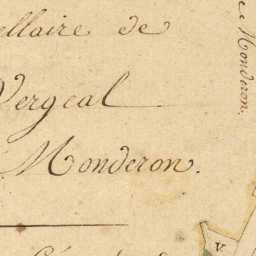 ellaire de
Vergeal
Monderon.
e Monderon.
V.